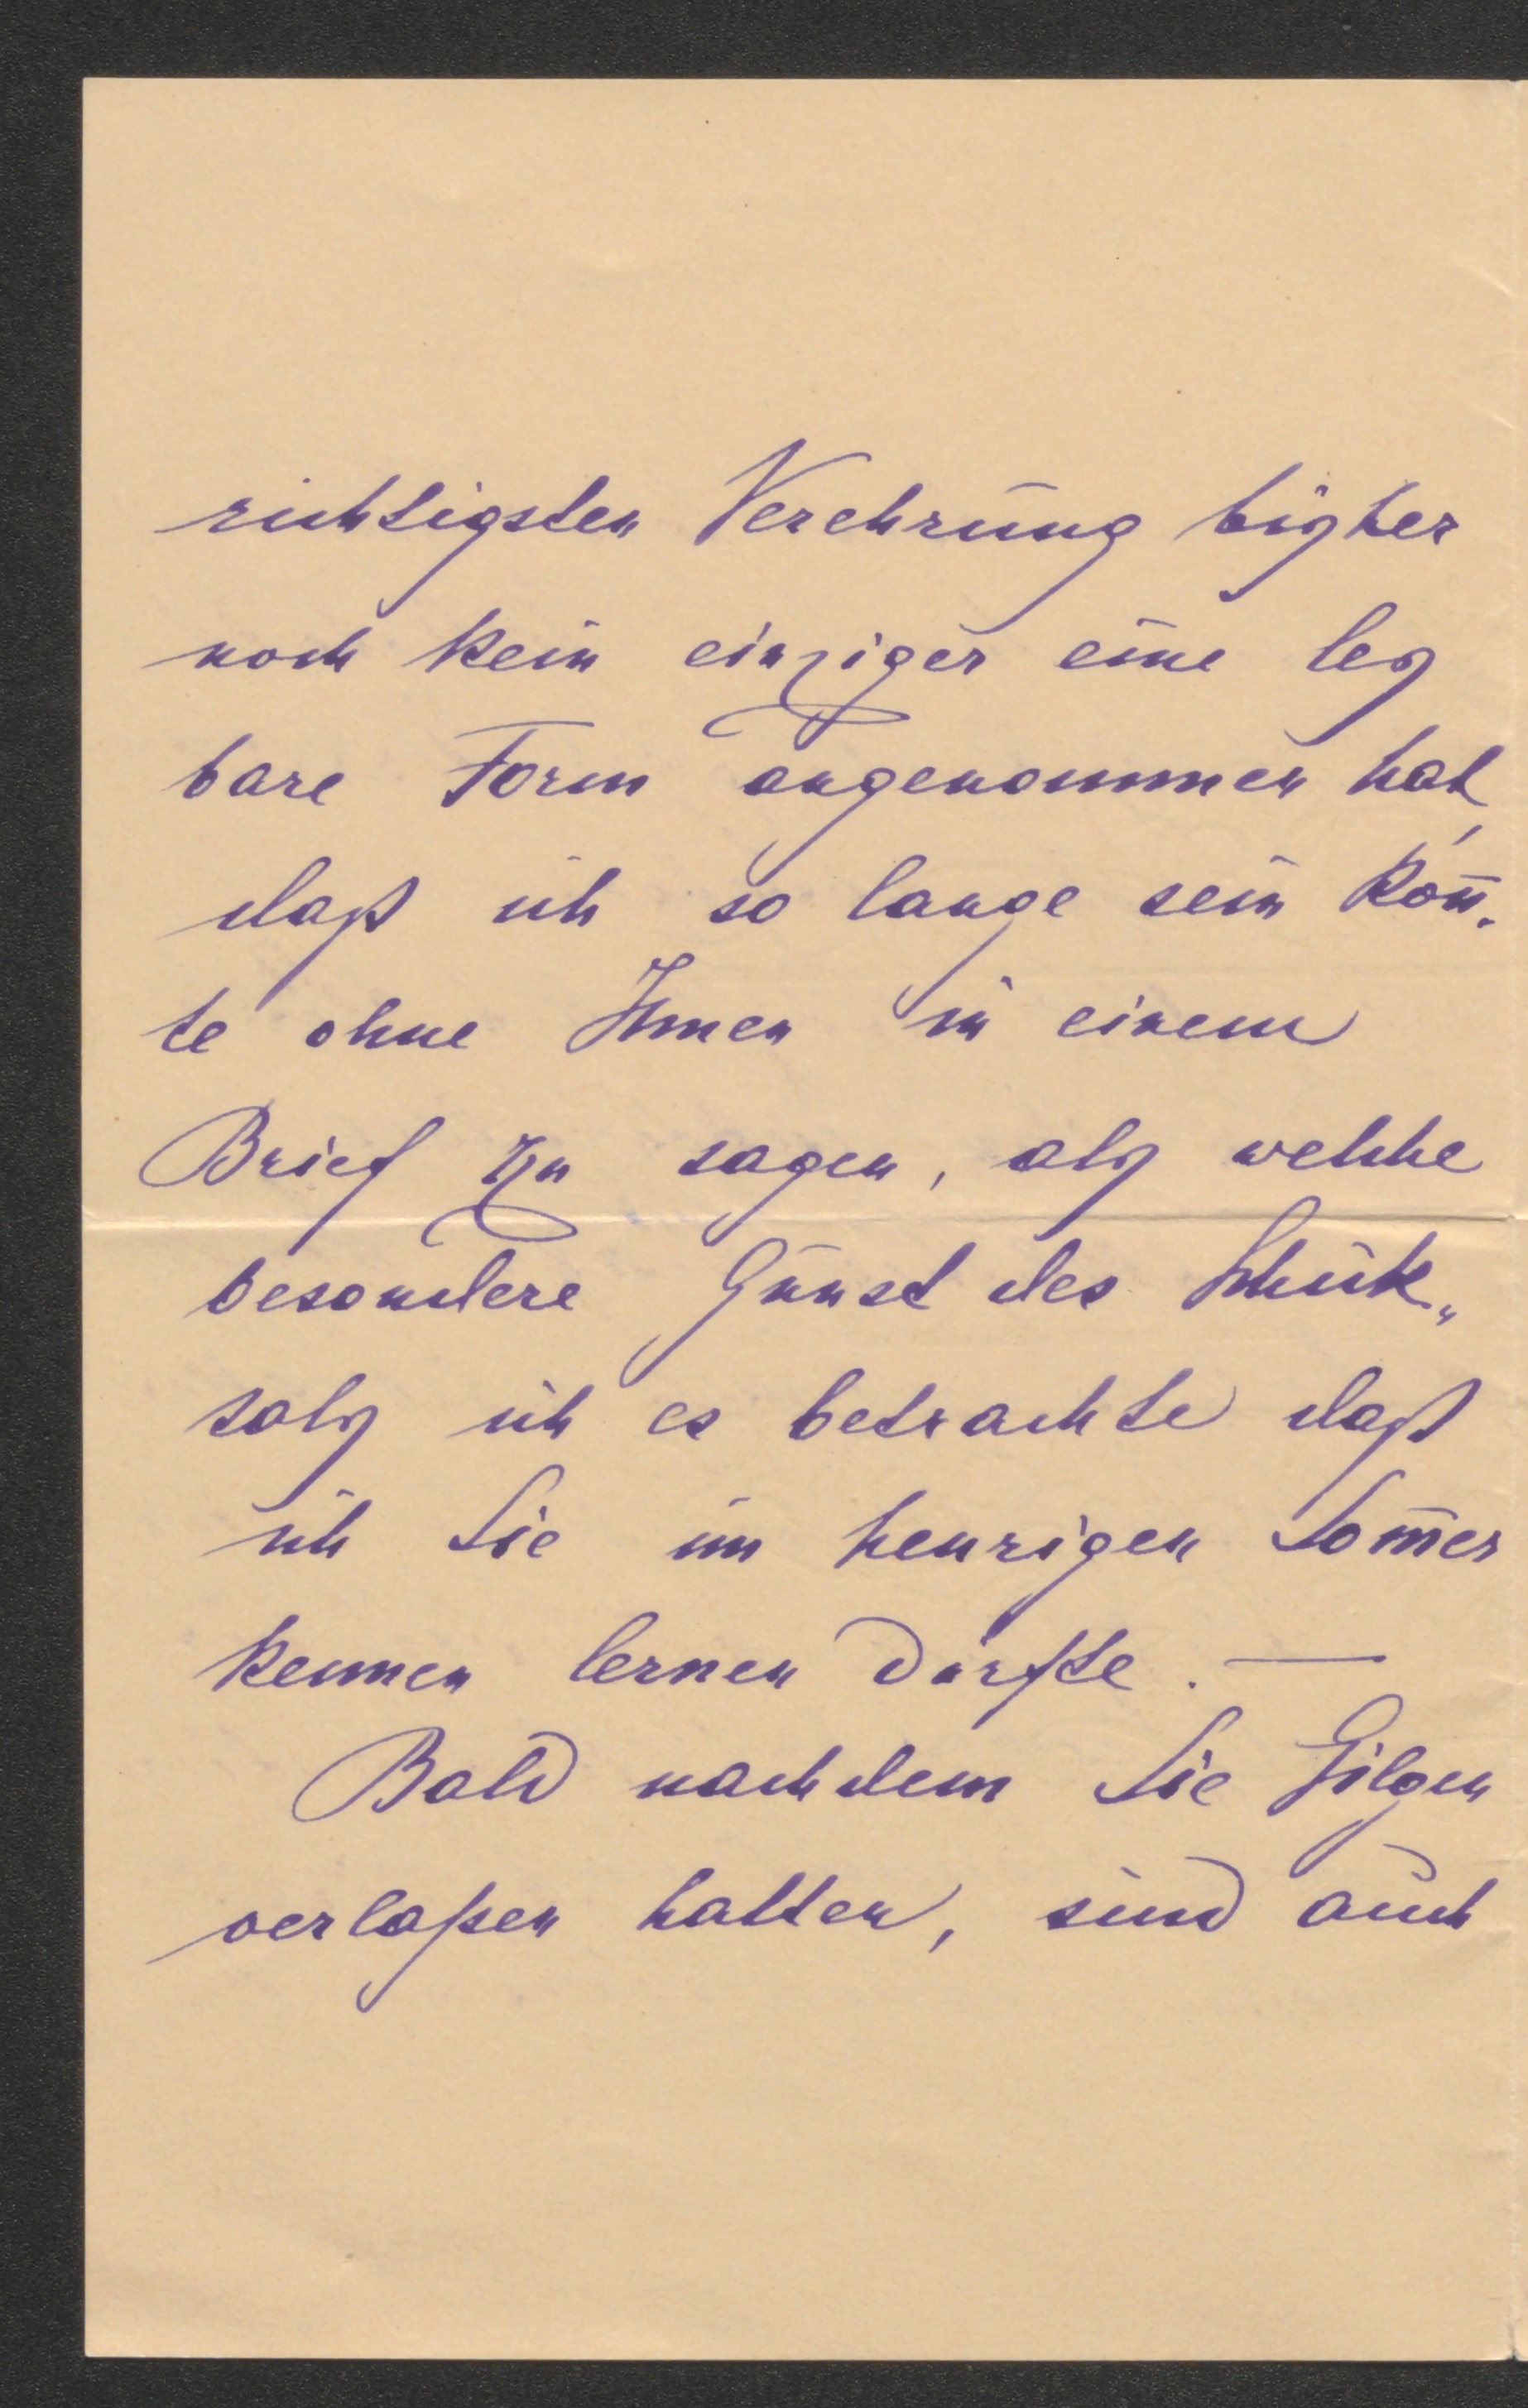 richtigsten Verehrung bisher
noch kein einziger eine les
bare Form angenommen hat,
daß ich so lange sein kon̄-
te ohne Ihnen in einem
Brief zu sagen, als welche
besondere Gunst des Schick„
sals ich es betrachte daß
ich Sie im heurigen Som̄er
kennen lernen durfte. —
Bald nachdem Sie Gilgen
verlaßen hatten, sind auch